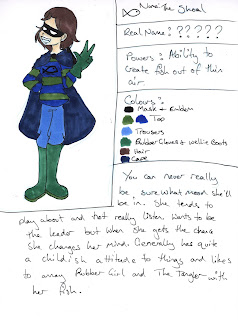 Name: The Shoal
Real Name: ? ? ? ? ?
Powers: Ability to
create fish out of thin
air.
Colours:
Mask & Emblem
Top
Trousers
Rubber Gloves & Wellie Boots
Hair
Cape
You can never really
be sure what mood she'll
be in. She tends to
play about and not really listen. Wants to be
the leader but when she gets the chance
she changes her mind. Generally has quite
a childish attitude to things and likes
to annoy Rubber Girl and The Tangler with
her fish.